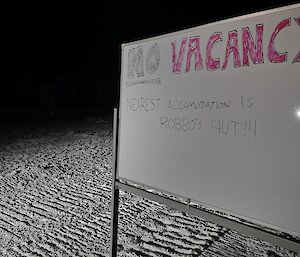 NO VACANCY
NEAREST ACCOMODATION IS
ROBBO'S HUT!!!